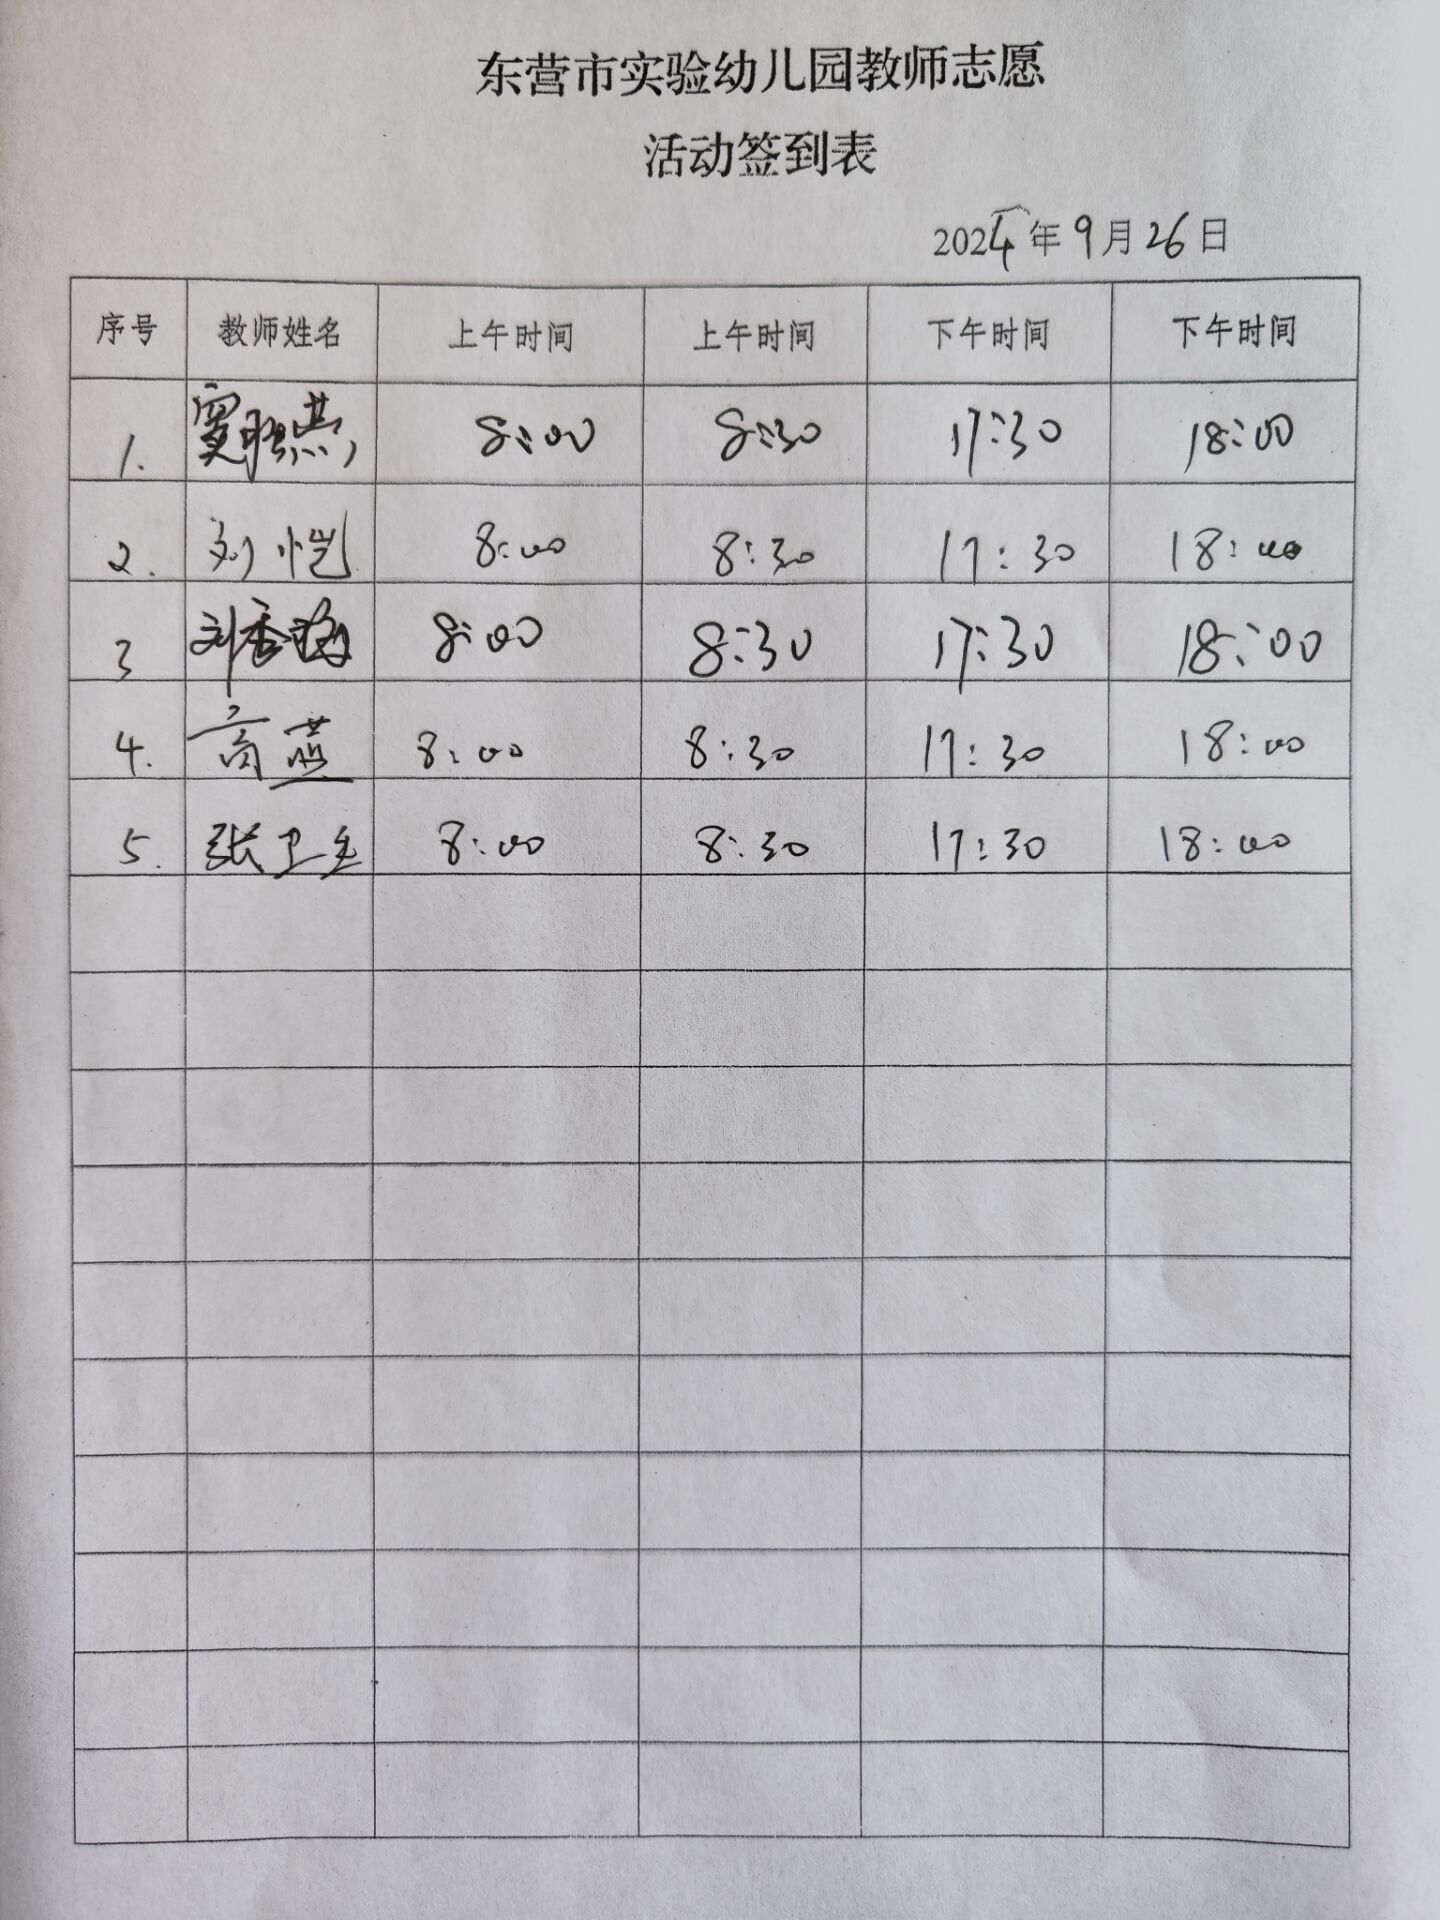 东营市实验幼儿园教师志愿
活动签到表
2024年9月26日
序号 教师姓名 上午时间 上午时间 下午时间 下午时间
1. 8:00 8:30 17:30 18:00
2. 刘恺 8:00 8:30 17:30 18:00
3 刘香梅 8:00 8:30 17:30 18:00
4. 高燕 8:00 8:30 17:30 18:00
5. 张卫 8:00 8:30 17:30 18:00